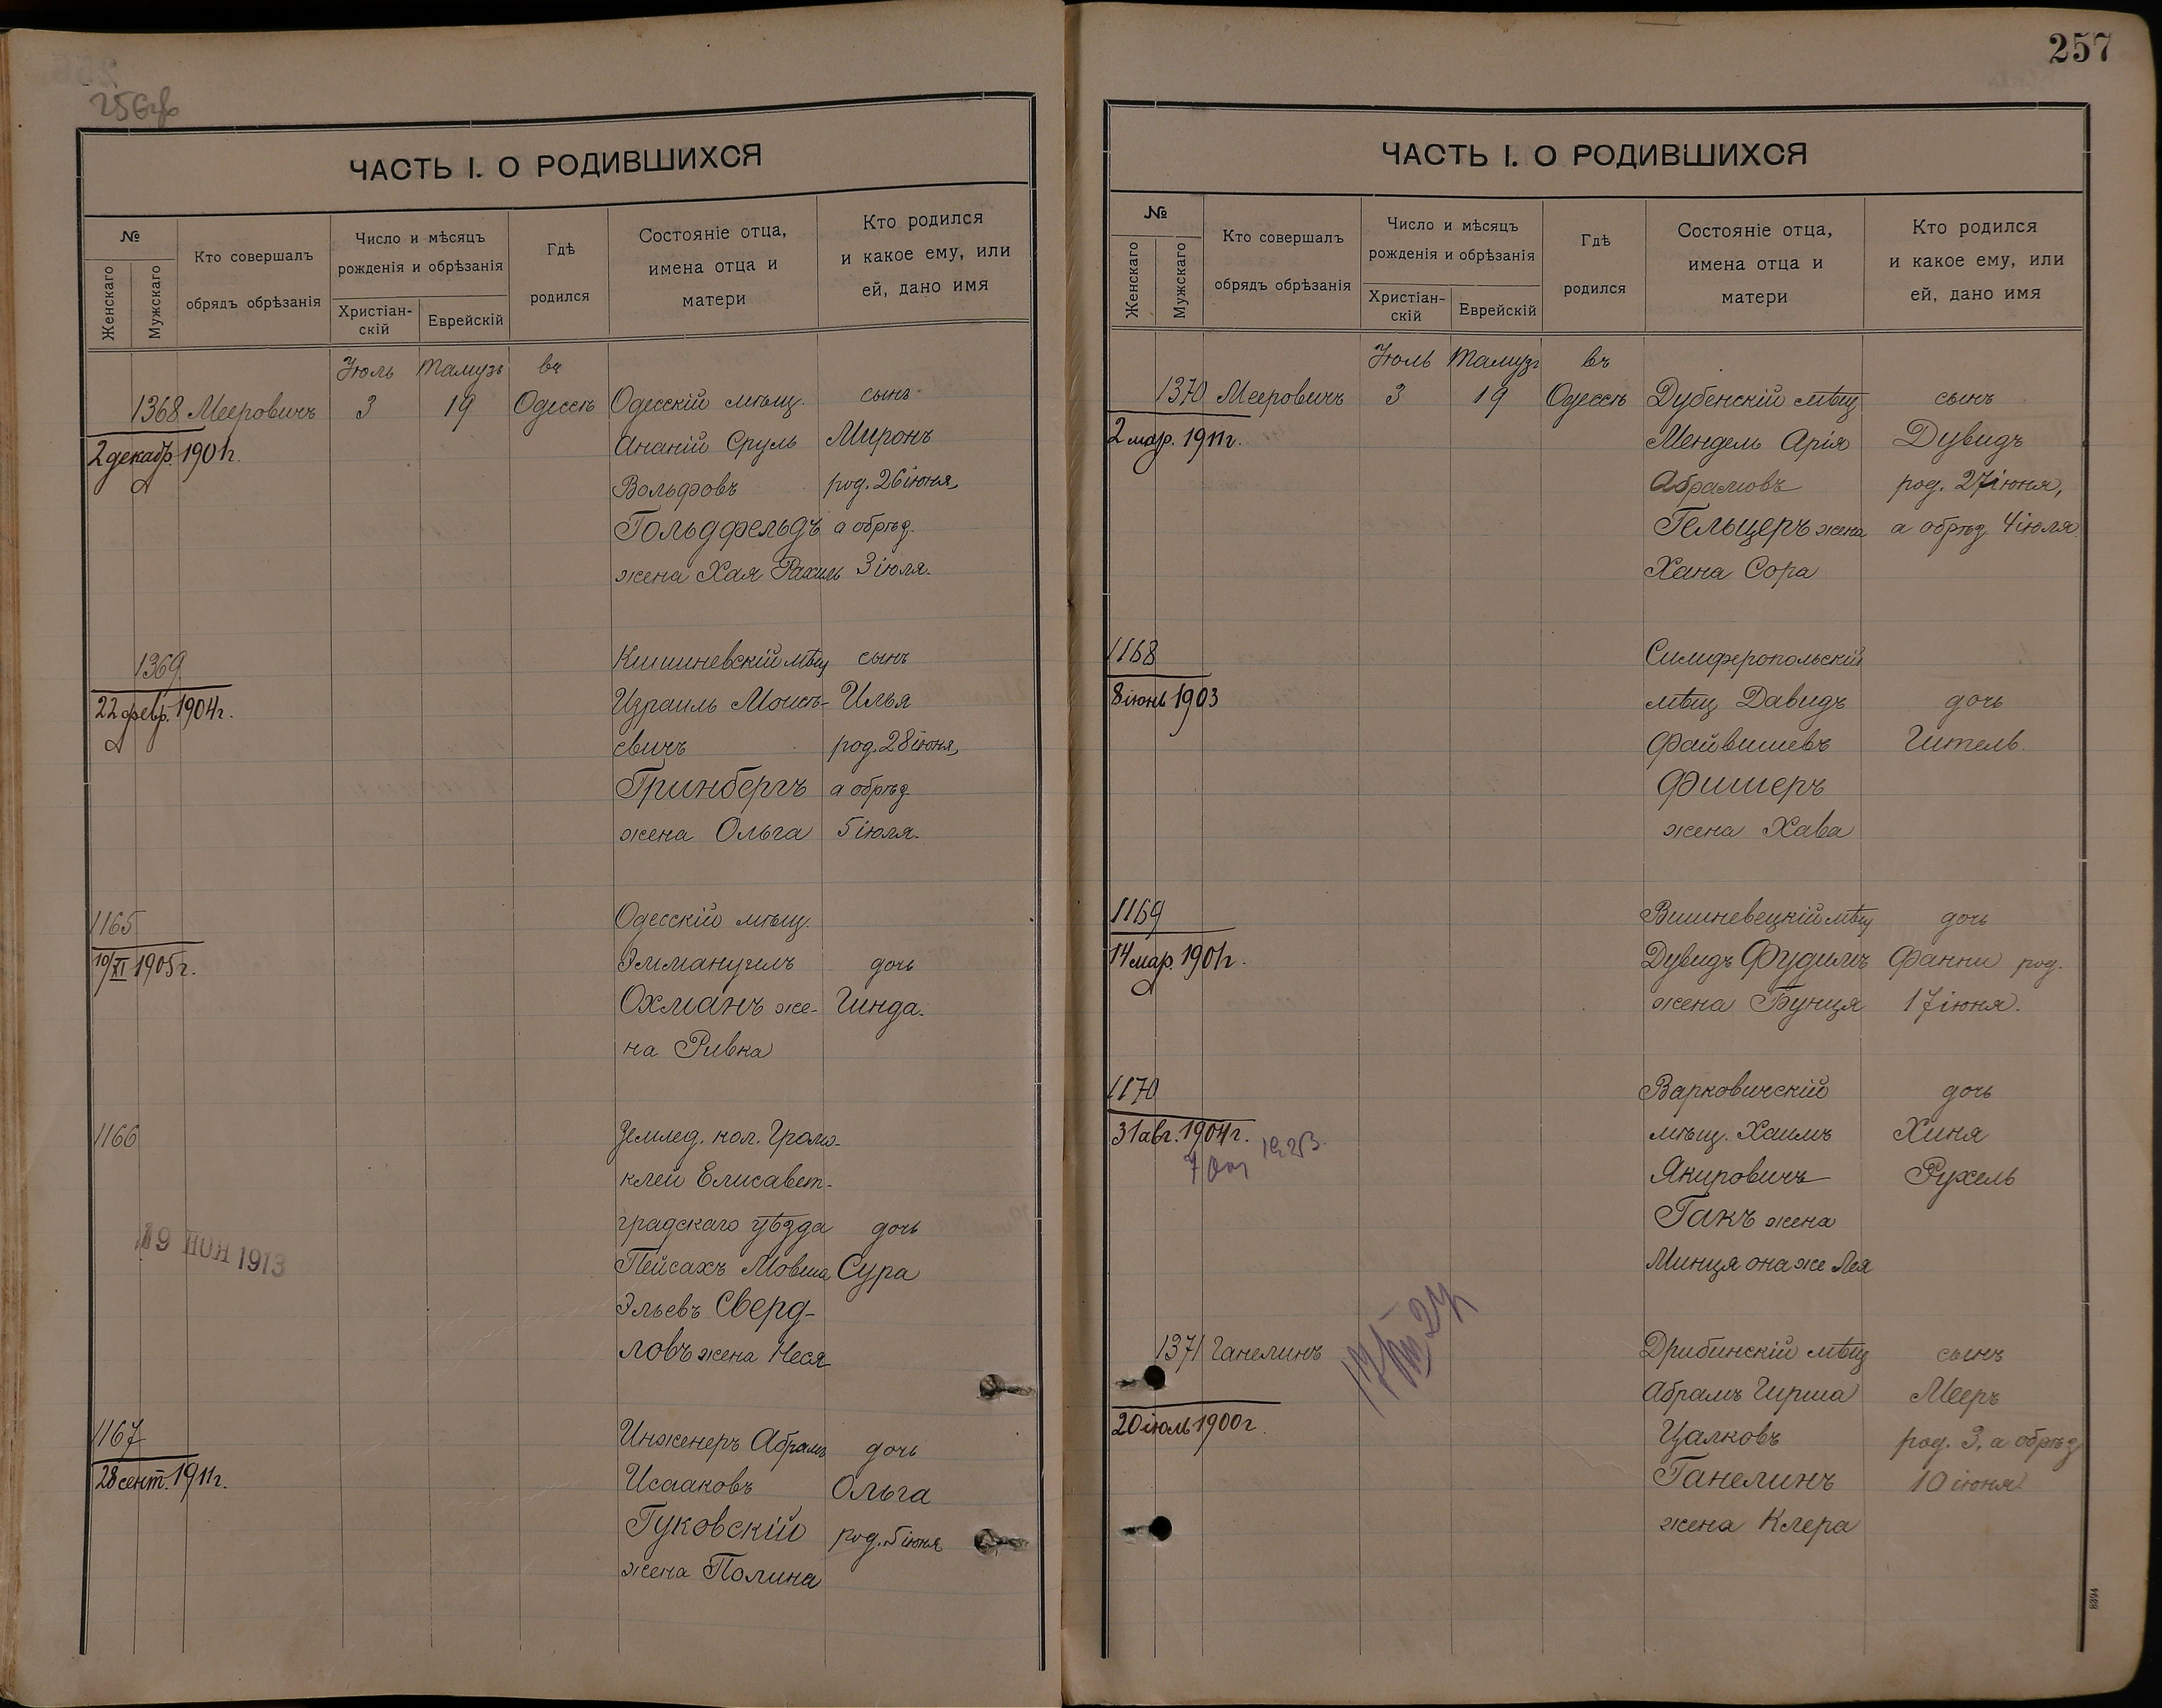 256об
ЧАСТЬ I. О РОДИВШИХСЯ
№
Женскаго
Мужскаго
Кто совершалъ
обрядъ обрѣзанія
Число и мѣсяцъ
рожденія и обрѣзанія
Христіан-
скій
Еврейскій
Гдѣ
родился
Состояніе отца,
имена отца и
матери
Кто родился
и какое ему, или
ей, дано имя
Іюль Тамузъ въ
1368 Мееровичъ 3 19 Одессѣ Одесскій мѣщ. сынъ
2 декабр. 1901г. Ананій Сруль Миронъ
Вольфовъ род. 26 іюня,
Гольдфельдъ а обрѣз.
жена Хая Рахиль 3 іюля.
1369 Кишиневскій мѣщ сынъ
22 февр. 1904г. Израиль Моисѣ- Илья
евичъ род. 28 іюня,
Гринбергъ а обрѣз.
жена Ольга 5 іюля.
1165 Одесскій мѣщ.
10/XI 1905г. Эммануилъ дочь
Охманъ же- Гинда.
на Ривка
1166 Землед. кол. Громо-
клей Елисавет-
градскаго уѣзда дочь
19 ІЮН 1913 Пейсахъ Мовша Сура
Эльевъ Сверд-
ловъ жена Неся
1167 Инженеръ Абрамъ дочь
28 сент. 1911г. Исааковъ Ольга
Гуковскій род. 5 іюня
жена Полина
257
ЧАСТЬ I. О РОДИВШИХСЯ
№
Женскаго
Мужскаго
Кто совершалъ
обрядъ обрѣзанія
Число и мѣсяцъ
рожденія и обрѣзанія
Христіан-
скій
Еврейскій
Гдѣ
родился
Состояніе отца,
имена отца и
матери
Кто родился
и какое ему, или
ей, дано имя
Іюль Тамузъ въ
1370 Мееровичъ 3 19 Одессѣ Дубенскій мѣщ сынъ
2 мар. 1911г. Мендель Арія Дувидъ
Абрамовъ род. 27 іюня,
Гельцеръ жена а обрѣз. 4 іюля
Хана Сора
1168 Симферопольскій
8 іюнь 1903 мѣщ Давидъ дочь
Файвишевъ Гитель.
Фишеръ
жена Хава
1169 Вишневецкій мѣщ дочь
14 мар. 1901г. Дувидъ Фудимъ Фанни род.
жена Бунця 17 іюня.
1170 Варковичскій дочь
31 авг. 1904г. мѣщ. Хаимъ Хиня
Якировичъ Рухель
Гакъ жена
Минця она же Лея
1371 Ганелинъ Дрибинскій мѣщ сынъ
Абрамъ Гирша Мееръ
20 іюль 1900г. Цалковъ род. 3, а обрѣз
Ганелинъ 10 іюня
жена Клера
8394